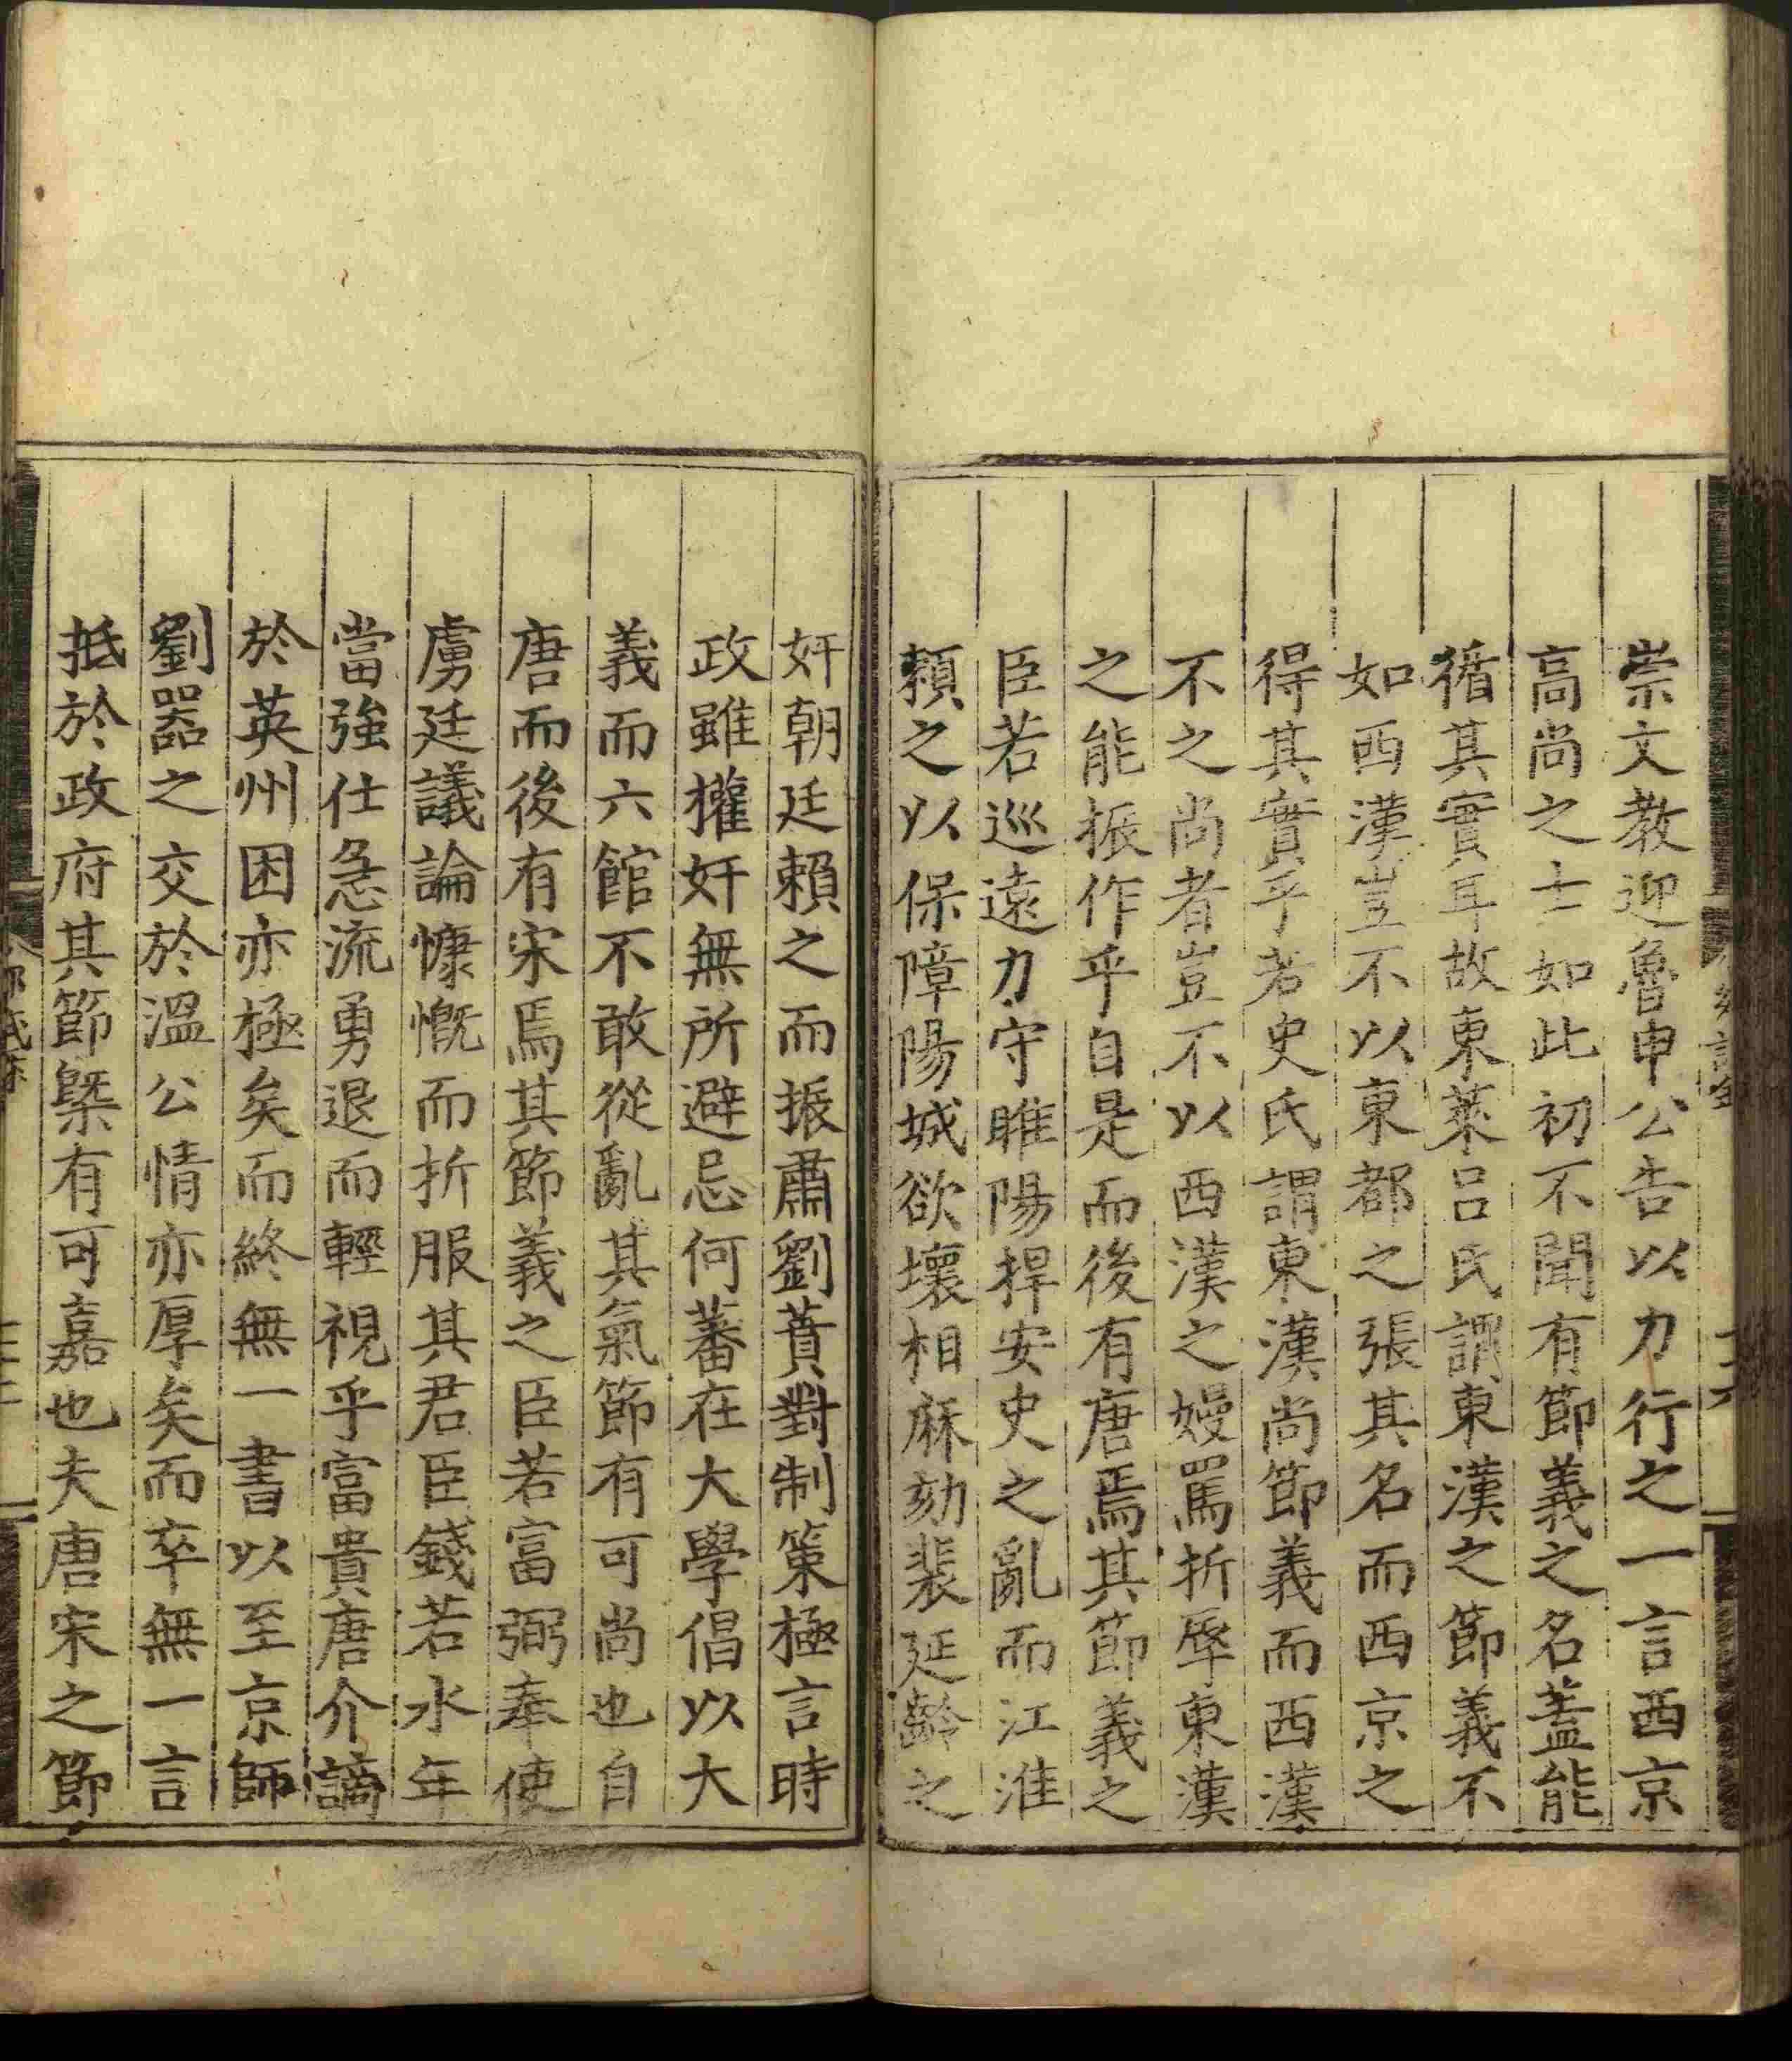 崇文教迎魯申公告以力行之一言西京
高尚之士如此初不聞有節義之名蓋能
循其實耳故東萊呂氏謂東漢之節義不
如西漢豈不以東都之張其名而西京之
得其實乎若史氏謂東漢尚節義而西漢
不之尚者豈不以西漢之嫚罵折辱東漢
之能振作乎自是而後有唐焉其節義之
臣若巡遠力守睢陽捍安史之亂而江淮
賴之以保障陽城欲壞相麻劾裴延齡之
奸朝廷賴之而振肅劉蕡對制策極言時
政雖權奸無所避忌何蕃在大學倡以大
義而六館不敢從亂其氣節有可尚也自
唐而後有宋焉其節義之臣若富弼奉使
虜廷議論慷慨而折服其君臣錢若水年
當強仕急流勇退而輕視乎富貴唐介謫
於英州困亦極矣而終無一書以至京師
劉器之交於溫公情亦厚矣而卒無一言
抵於政府其節槩有可嘉也夫唐宋之節